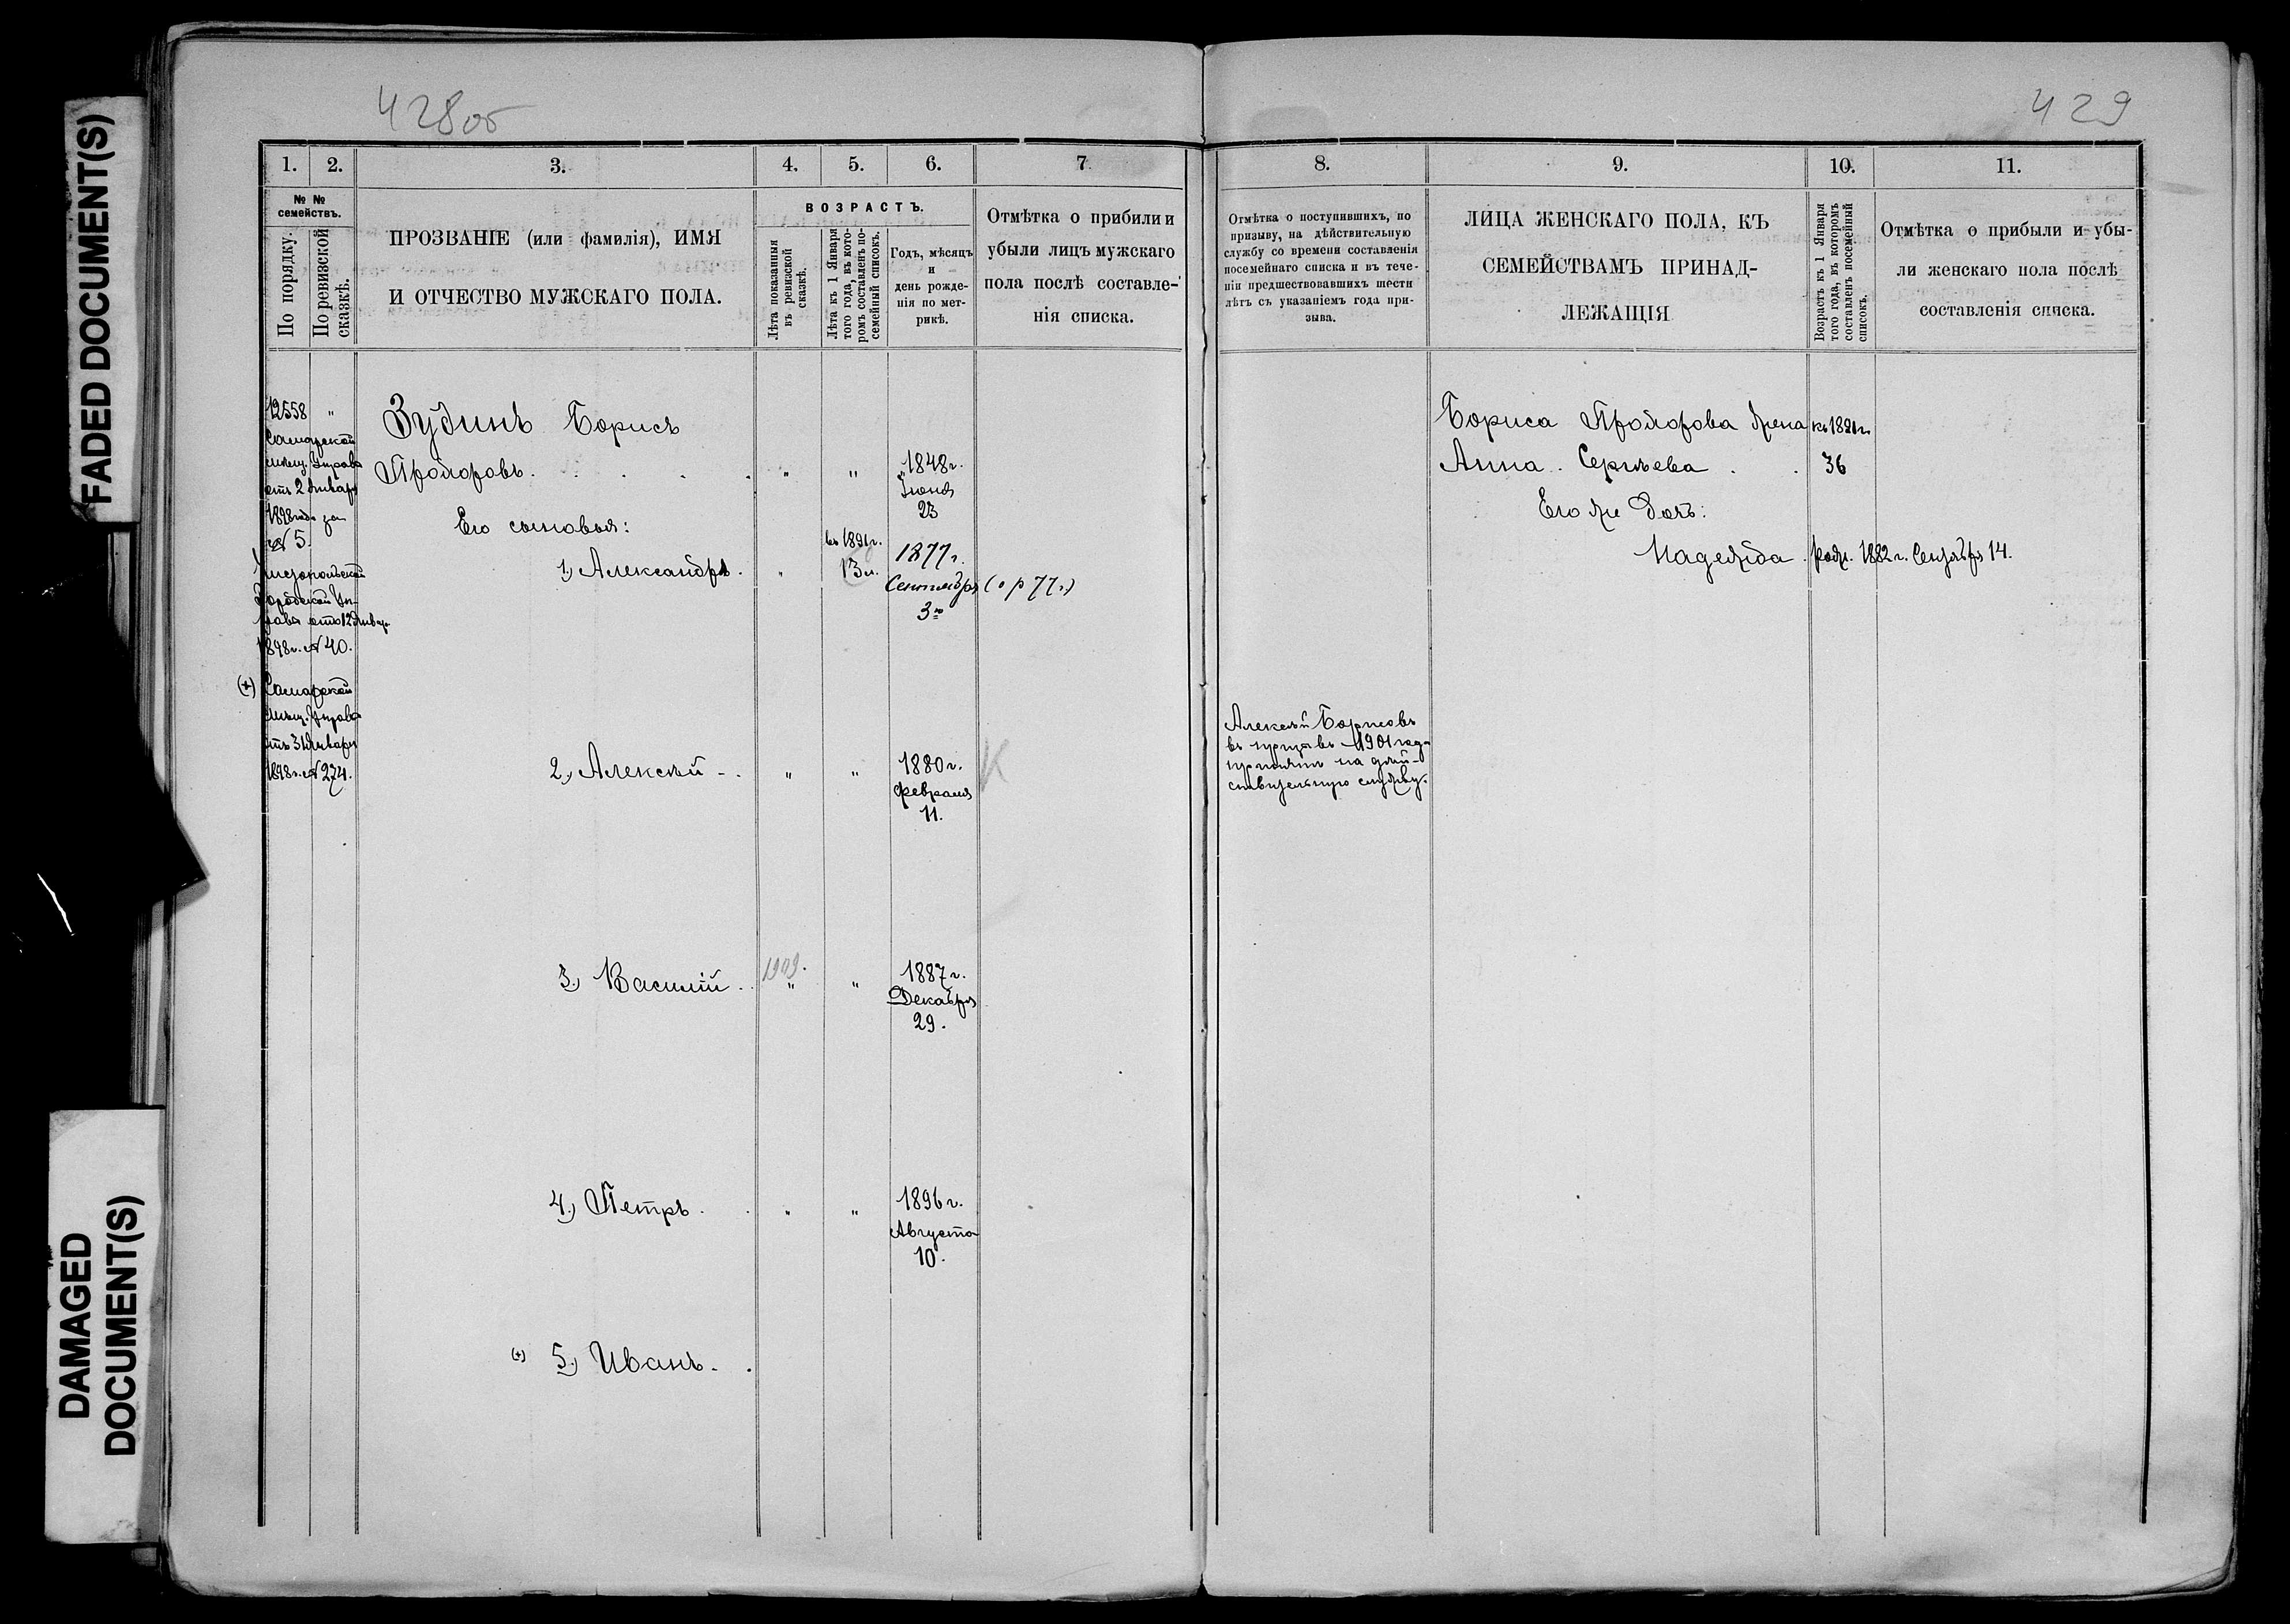 FADED DOCUMENT(S)
DAMAGED
DOCUMENT(S)
428об
429
1.
2.
3.
4.
5.
6.
7
№ №
семействъ.
По порядку.
По ревизской
сказкѣ.
ПРОЗВАНІЕ (или фамилія), ИМЯ
И ОТЧЕСТВО МУЖСКАГО ПОЛА.
ВОЗРАСТЪ.
Лѣта показанныя
въ ревизской
сказкѣ.
Лѣта къ 1 Января
того года, въ кото-
ромъ составленъ по-
семейный списокъ.
Годъ, мѣсяцъ
и
день рожде-
нія по мет-
рикѣ.
Отмѣтка о прибыли и
убыли лицъ мужскаго
пола послѣ составле-
нія списка.
8.
9.
10.
11.
Отмѣтка о поступившихъ, по
призыву, на дѣйствительную
службу со времени составленія
посемейнаго списка и въ тече-
ніи предшествовавшихъ шести
лѣтъ съ указаніемъ года при-
зыва.
ЛИЦА ЖЕНСКАГО ПОЛА, КЪ
СЕМЕЙСТВАМЪ ПРИНАД-
ЛЕЖАЩІЯ
Возрастъ къ 1 Января
того года, въ которомъ
составленъ посемейный
списокъ.
Отмѣтка о прибыли и убы-
ли женскаго пола послѣ
составленія списка.
12558 "
Самарской
мѣщ. Управы
отъ 2 Января
1898 года за
№ 5.
Городской Уп-
равы отъ 12 Январ.
1898 г. № 40.
(+) Самарской
мѣщ. Управы
отъ 31 Января
1898 г. № 274.
Зудинъ Борисъ
Прохоровъ . . . . " " 1848 г.
Іюня
23
Его сыновья:
1.) Александръ . " въ 1891 г.
13 л.
1877 г.
Сентября (о р 77 г)
3го
2.) Алексѣй - . " " 1880 г. К
Февраля
11.
3.) Василій . 1909. " " 1887 г.
Декабря
29.
4.) Петръ . . " " 1896 г.
Августа
10.
(+) 5.) Иванъ . .
Алексѣй Борисовъ
въ призывъ 1901 года
принятъ на дѣй-
ствительную службу.
Бориса Прохорова жена къ 1891 г.
Анна . Сергѣева . . 36
Его же дочь:
Надежда . рожд. 1882 г. Сентября 14.